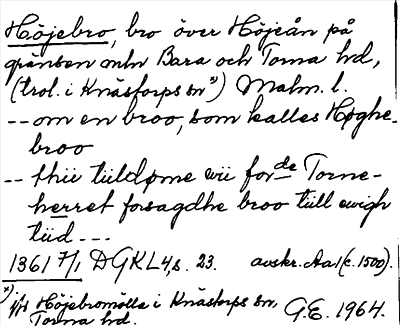 Höjebro, bro över Höjeån på
gränsen mln Bara och Torna hd,
(trol. i Knästorps sn x)) Malm. l.
-- om en broo, som kalles Høghe-
broo
-- thii tiildøme wii for de Torne-
herret forsagdhe broo tiill ewigh
tiid ---
1361 7/1 DGKL 4, s. 23. avskr. Aa1 (c. 1500).
x) jfr Höjebromölla i Knästorps sn,
Torna hd. G.E. 1964.